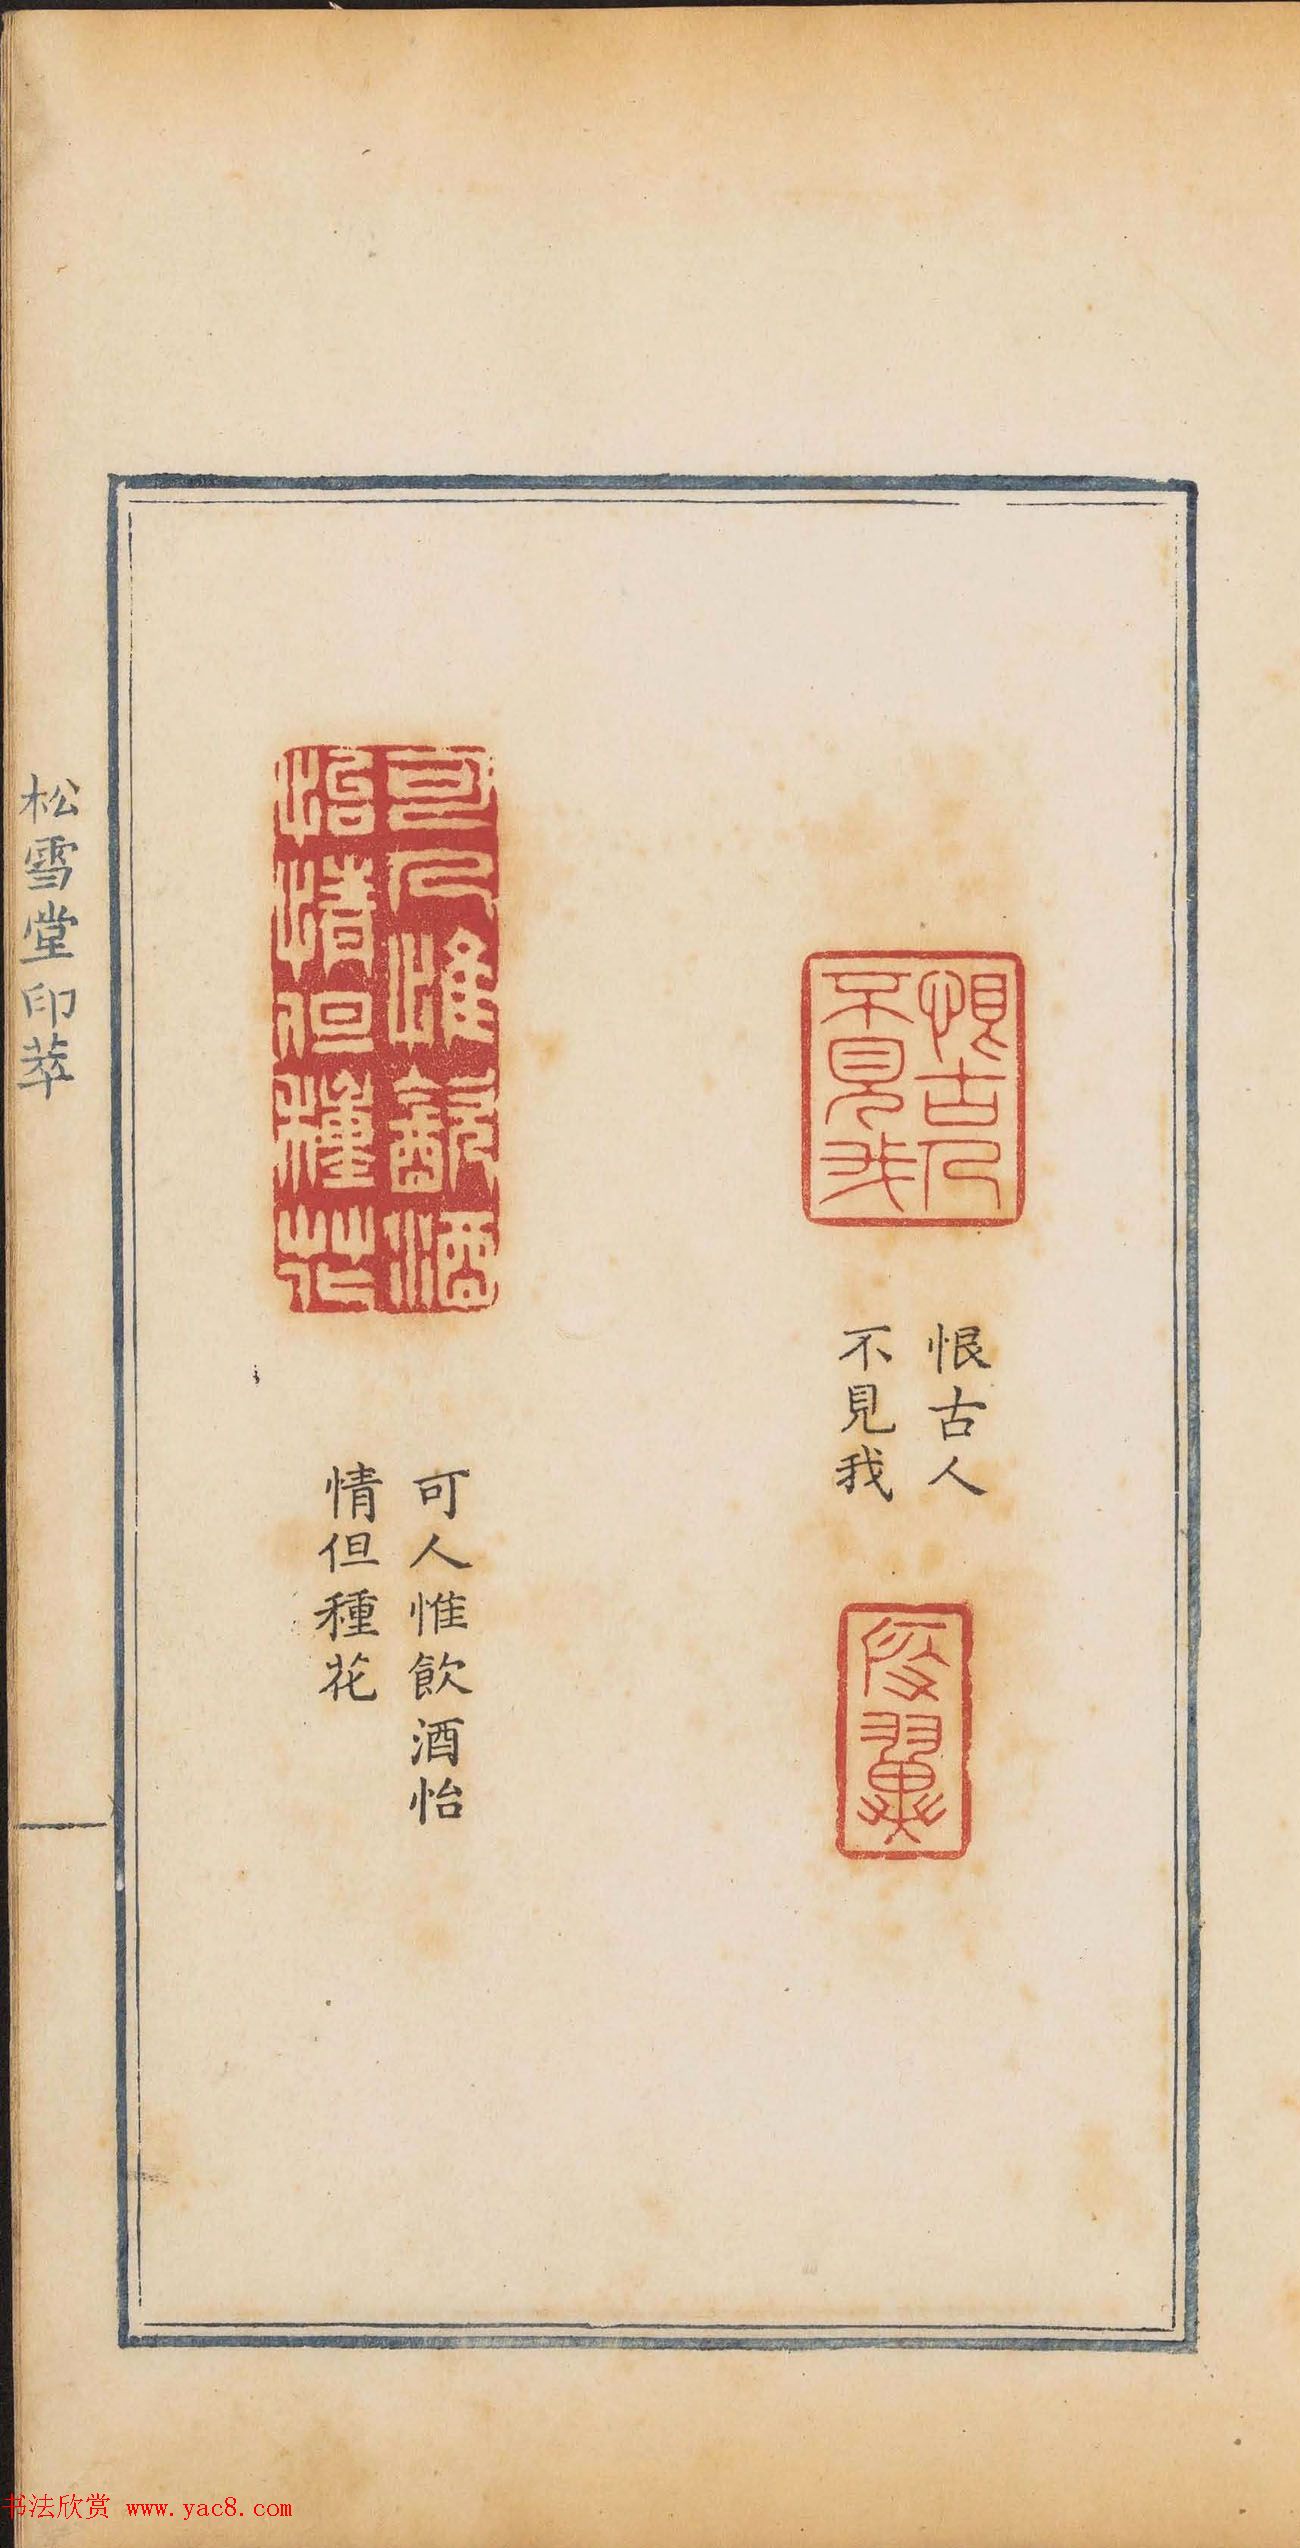 恨古人
不見我
恨古人
不見我
可人惟飲酒
怡情但種花
可人惟飲酒怡
情但種花
松雪堂印萃
书法欣赏 www.yac8.com